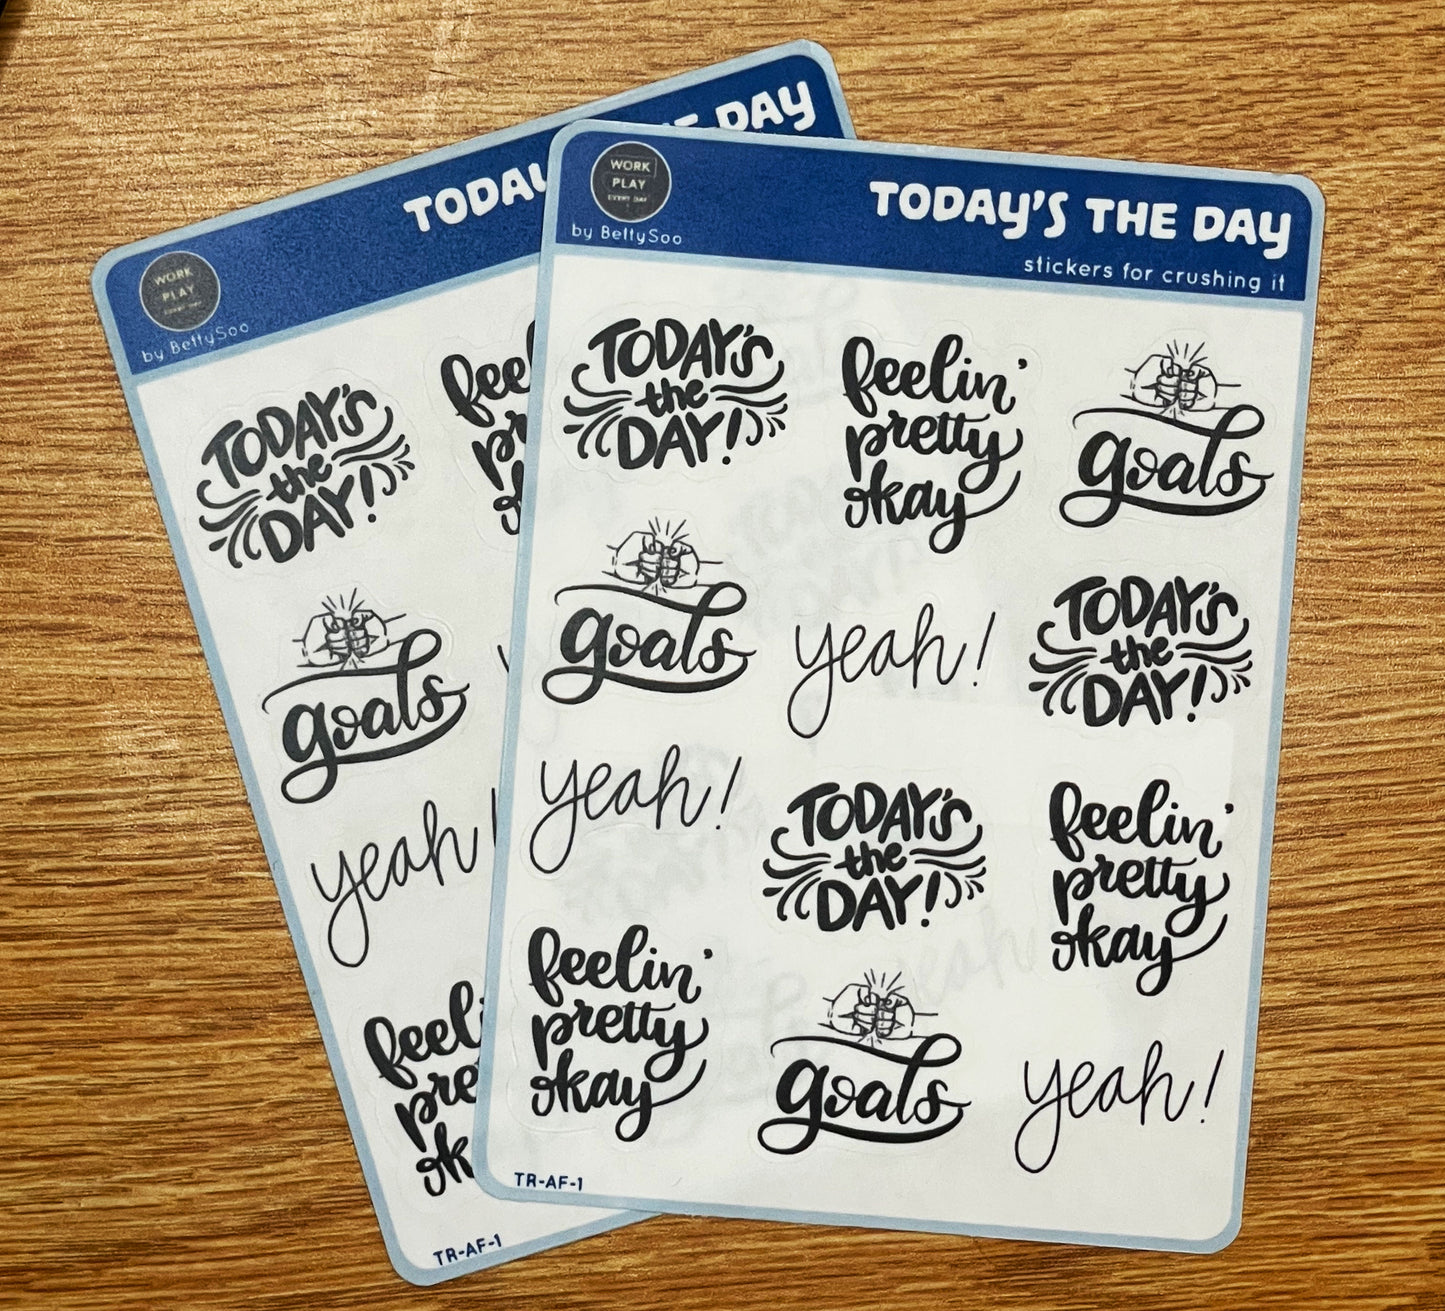 TODAY
DAY
WORK
PLAY
by BettySoo
TODAY'S
the
DAY!
feelin'
pretty
okay
goals
yeah!
TR-AF-1
WORK
PLAY
EVERY DAY
by BettySoo
TODAY'S THE DAY
stickers for crushing it
TODAY'S
the
DAY!
feelin'
pretty
okay
goals
goals
yeah!
TODAY'S
the
DAY!
yeah!
TODAY'S
the
DAY!
feelin'
pretty
okay
feelin'
pretty
okay
goals
yeah!
TR-AF-1